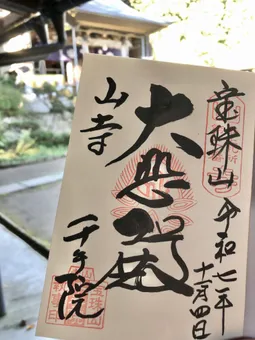 竜珠山 令和七年
十一月四日
大悲殿
山寺
千手院